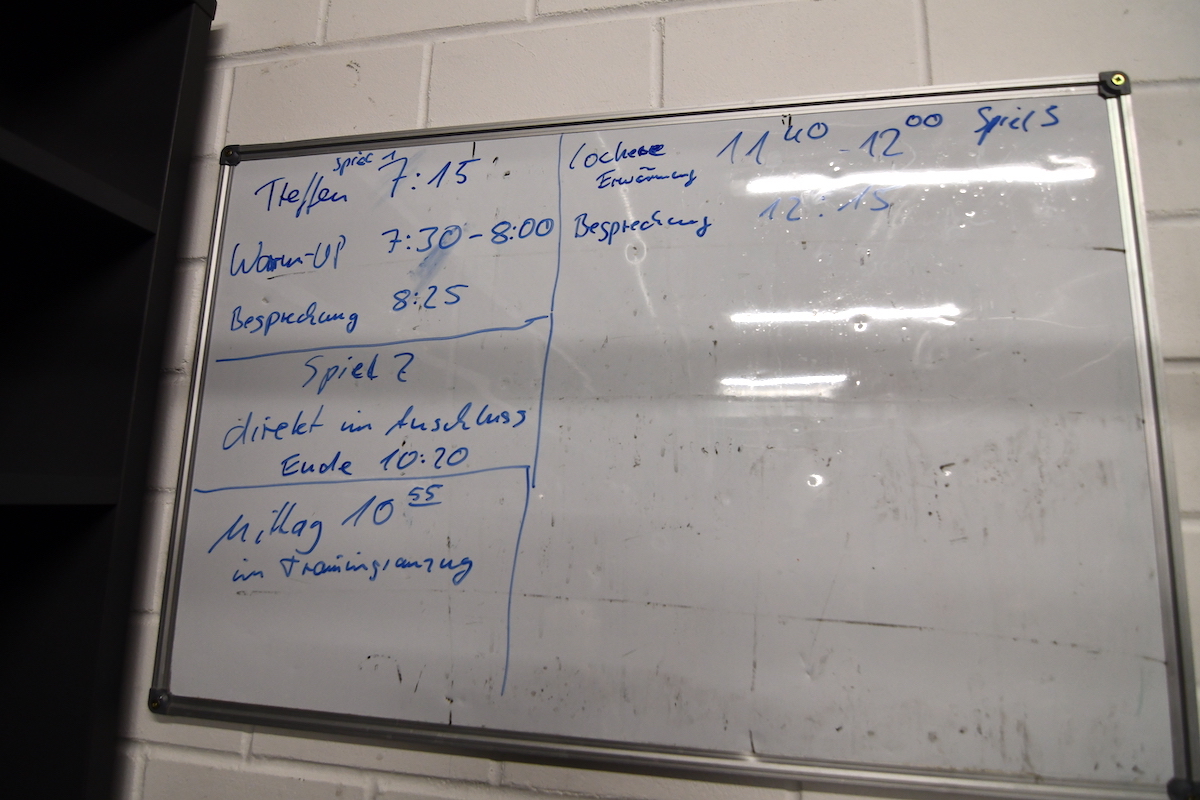 Spiel 1
Treffen 7:15
Warm-UP 7:30-8:00
Besprechung 8:25
Spiel 2
direkt im Anschluss
Ende 10:20
Mittag 10 55
im Trainingsanzug
lockere 11 40 - 12 00 Spiel 3
Erwärmung
Besprechung 12:15